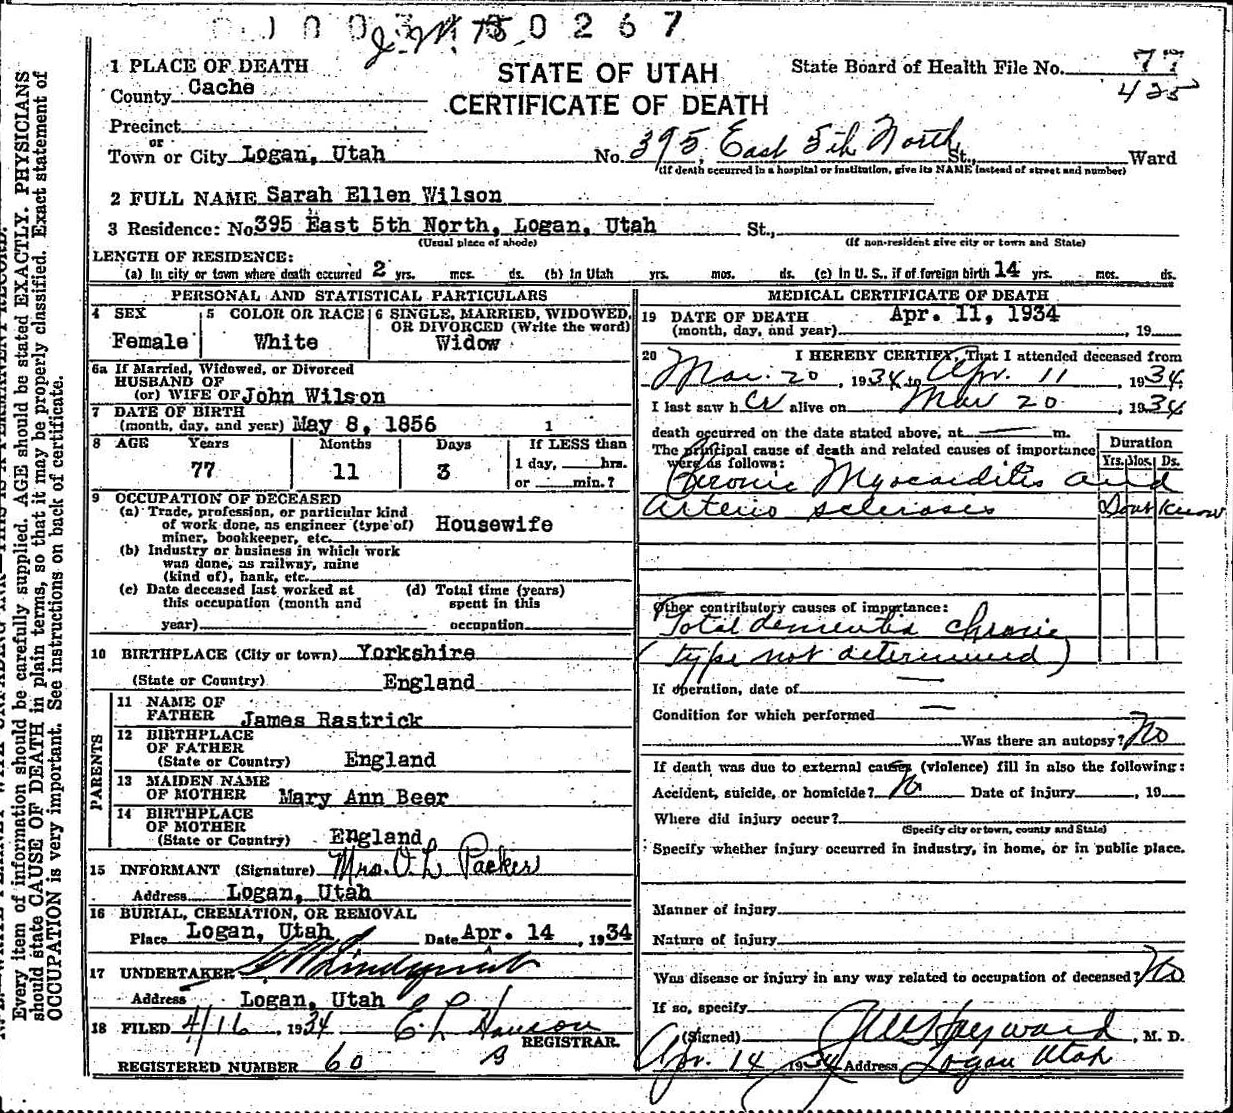 0267
1 PLACE OF DEATH
County Cache
Precinct
or
Town or City Logan, Utah
STATE OF UTAH
CERTIFICATE OF DEATH
State Board of Health File No. 77
425
No. 395 East 5th North St., Ward
(If death occurred in a hospital or institution, give its NAME instead of street and number)
2 FULL NAME Sarah Ellen Wilson
3 Residence: No. 395 East 5th North, Logan, Utah St.,
(Usual place of abode) (If non-resident give city or town and State)
LENGTH OF RESIDENCE:
(a) In city or town where death occurred 2 yrs. mos. ds. (b) In Utah yrs. mos. ds. (c) In U. S., if of foreign birth 14 yrs. mos. ds.
PERSONAL AND STATISTICAL PARTICULARS
4 SEX Female
5 COLOR OR RACE White
6 SINGLE, MARRIED, WIDOWED, OR DIVORCED (Write the word) Widow
6a If Married, Widowed, or Divorced
HUSBAND OF
(or) WIFE OF John Wilson
7 DATE OF BIRTH
(month, day, and year) May 8, 1856 1
8 AGE Years Months Days If LESS than
77 11 3 1 day, hrs.
or min.?
9 OCCUPATION OF DECEASED
(a) Trade, profession, or particular kind
of work done, as engineer (type of) Housewife
miner, bookkeeper, etc.
(b) Industry or business in which work
was done, as railway, mine
(kind of), bank, etc.
(c) Date deceased last worked at (d) Total time (years)
this occupation (month and spent in this
year) occupation
10 BIRTHPLACE (City or town) Yorkshire
(State or Country) England
PARENTS
11 NAME OF
FATHER James Rastrick
12 BIRTHPLACE
OF FATHER
(State or Country) England
13 MAIDEN NAME
OF MOTHER Mary Ann Beer
14 BIRTHPLACE
OF MOTHER
(State or Country) England
15 INFORMANT (Signature) Mrs. O. L Packer
Address Logan, Utah
16 BURIAL, CREMATION, OR REMOVAL
Place Logan, Utah Date Apr. 14, 1934
17 UNDERTAKER Lindquist
Address Logan, Utah
18 FILED 4/16, 1934 E. L Hanson
REGISTRAR.
REGISTERED NUMBER 60
MEDICAL CERTIFICATE OF DEATH
19 DATE OF DEATH Apr. 11, 1934
(month, day, and year) , 19
20 I HEREBY CERTIFY, That I attended deceased from
Mar. 20, 1934 to Apr. 11, 1934
I last saw her alive on Mar 20, 1934
death occurred on the date stated above, at m.
The principal cause of death and related causes of importance
were as follows:
Duration
Yrs. Mos. Ds.
Chronic Myocarditis and
Arterio sclerosis Dont Know
Other contributory causes of importance:
Total dementia chronic
(type not determined)
If operation, date of —
Condition for which performed —
Was there an autopsy? No
If death was due to external causes (violence) fill in also the following:
Accident, suicide, or homicide? No Date of injury , 19
Where did injury occur?
(Specify city or town, county and State)
Specify whether injury occurred in industry, in home, or in public place.
Manner of injury
Nature of injury
Was disease or injury in any way related to occupation of deceased? No
If so, specify
(Signed) Hayward, M. D.
Apr. 14 1934 Address Logan Utah
Every item of information should be carefully supplied. AGE should be stated EXACTLY. PHYSICIANS
should state CAUSE OF DEATH in plain terms, so that it may be properly classified. Exact statement of
OCCUPATION is very important. See instructions on back of certificate.